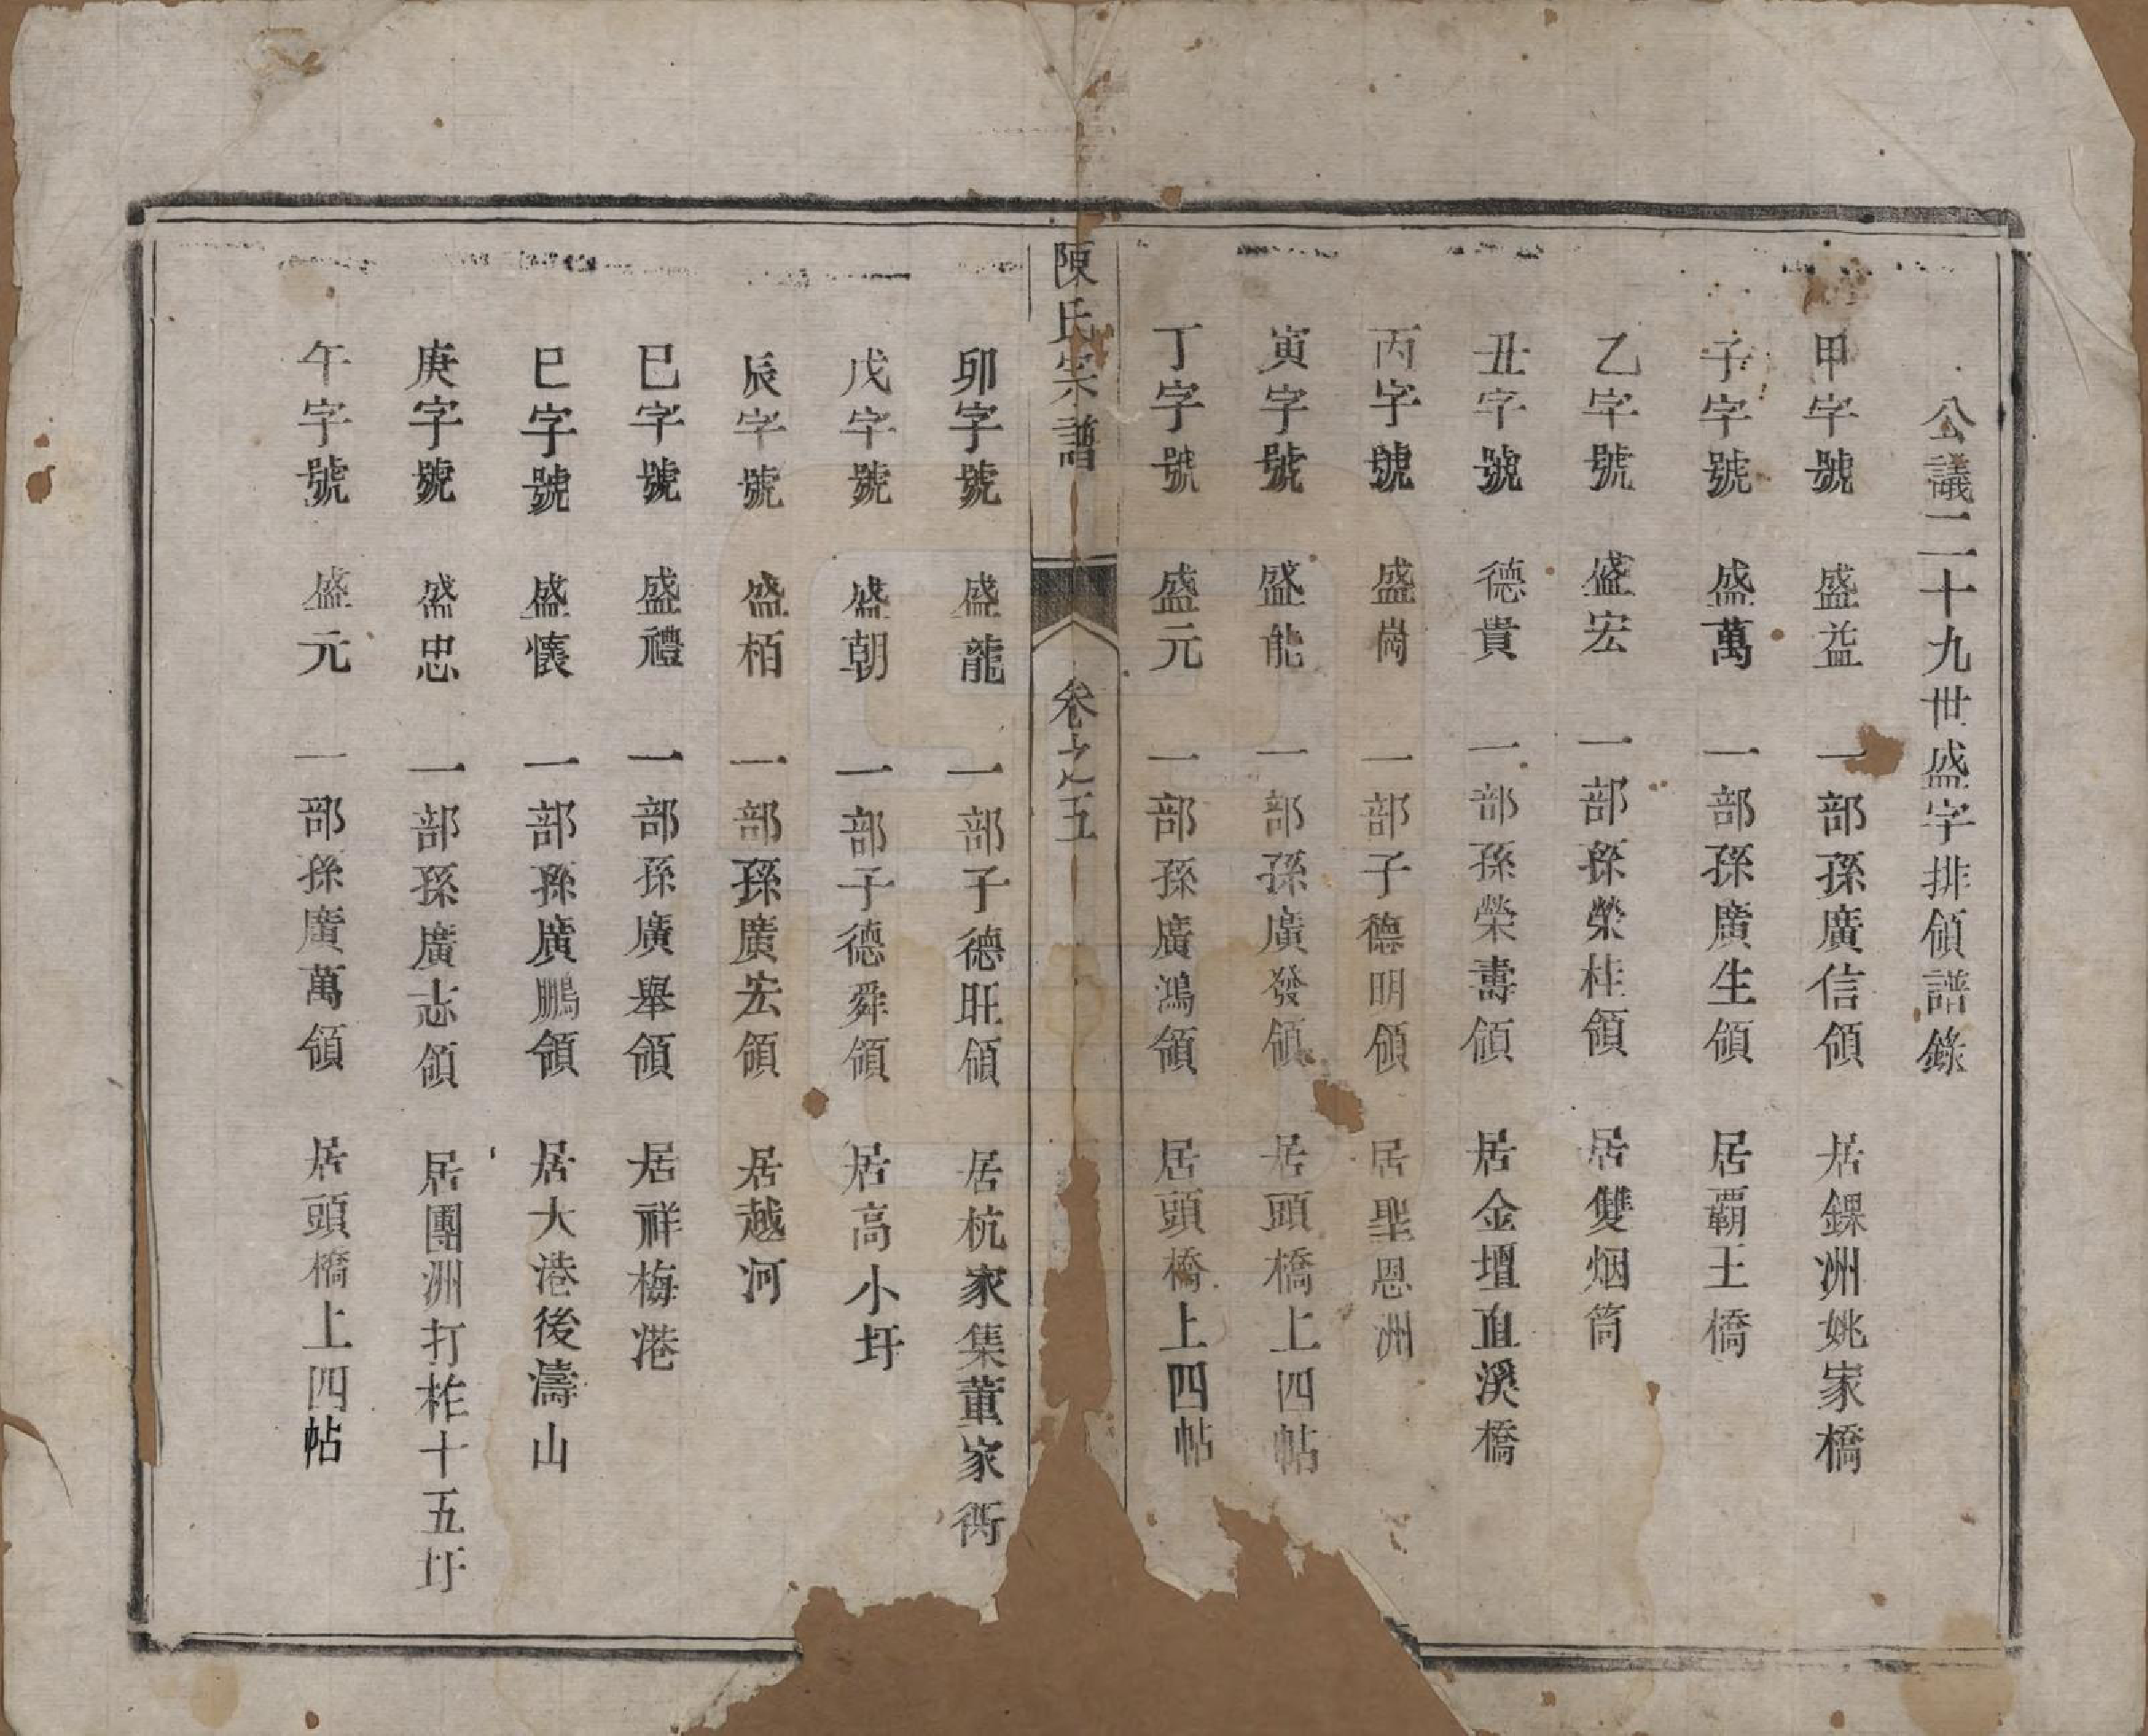 公議二十九世盛字排領譜錄
甲字號 盛益 一部孫廣信領 居錁洲姚家橋
子字號 盛萬 一部孫廣生領 居覇王橋
乙字號 盛宏 一部孫榮桂領 居雙烟筒
丑字號 德貴 一部孫榮壽領 居金壇直溪橋
丙字號 盛尙 一部子德明領 居聖恩洲
寅字號 盛能 一部孫廣發領 居頭橋上四帖
丁字號 盛元 一部孫廣鴻領 居頭橋上四帖
陳氏宗譜 卷之五
卯字號 盛龍 一部子德旺領 居杭家集董家衖
戊字號 盛朝 一部子德舜領 居高小圩
辰字號 盛栢 一部孫廣宏領 居越河
巳字號 盛禮 一部孫廣舉領 居祥梅港
巳字號 盛懷 一部孫廣鵬領 居大港後濤山
庚字號 盛忠 一部孫廣志領 居團洲打柞十五圩
午字號 盛元 一部孫廣萬領 居頭橋上四帖